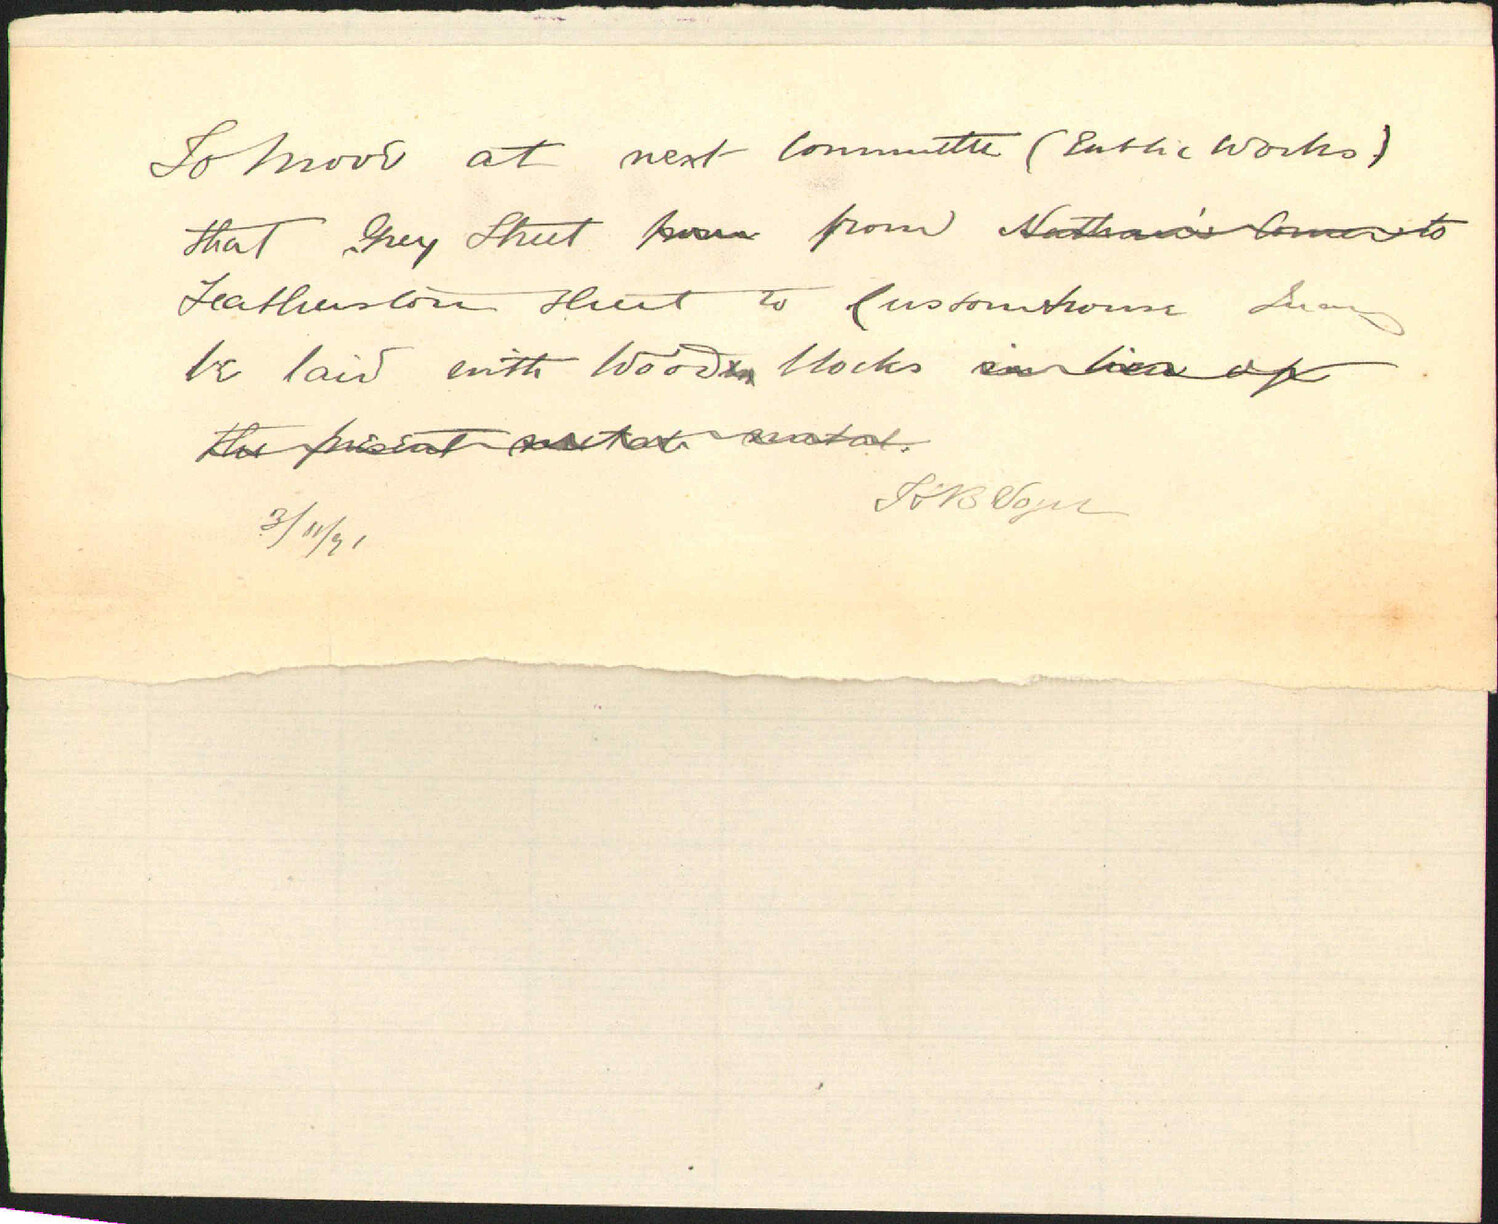 To move at next Committee (Public Works)
that Grey Street from from Nathan's Corner to
Featherston Street to Customhouse Quay
be laid with Wooden blocks in lieu of
the present metal metal.
H B Vogel
3/11/91